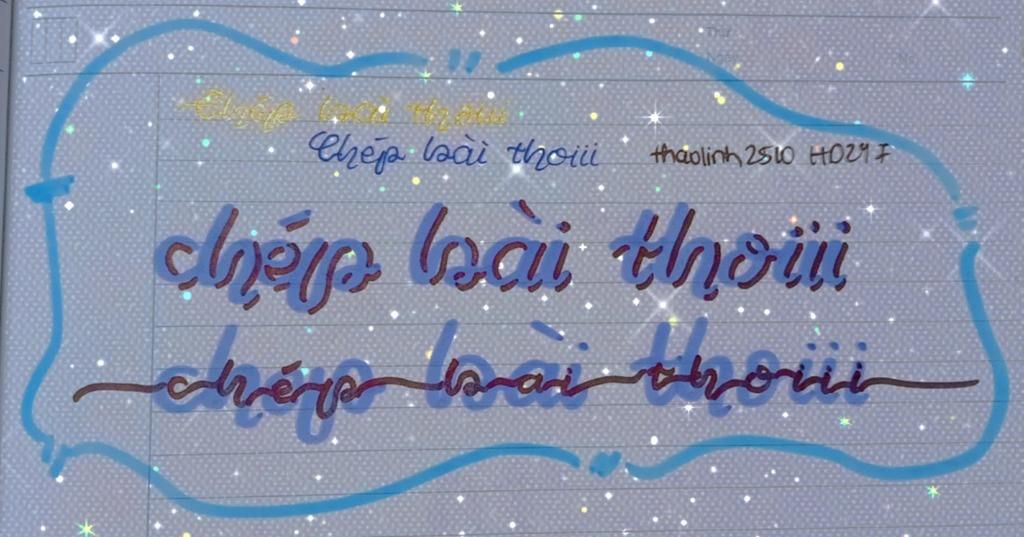 Chép bài thoiii
Chép bài thoiii thaolinh2510 HD247
chép bài thoiii
chép bài thoiii